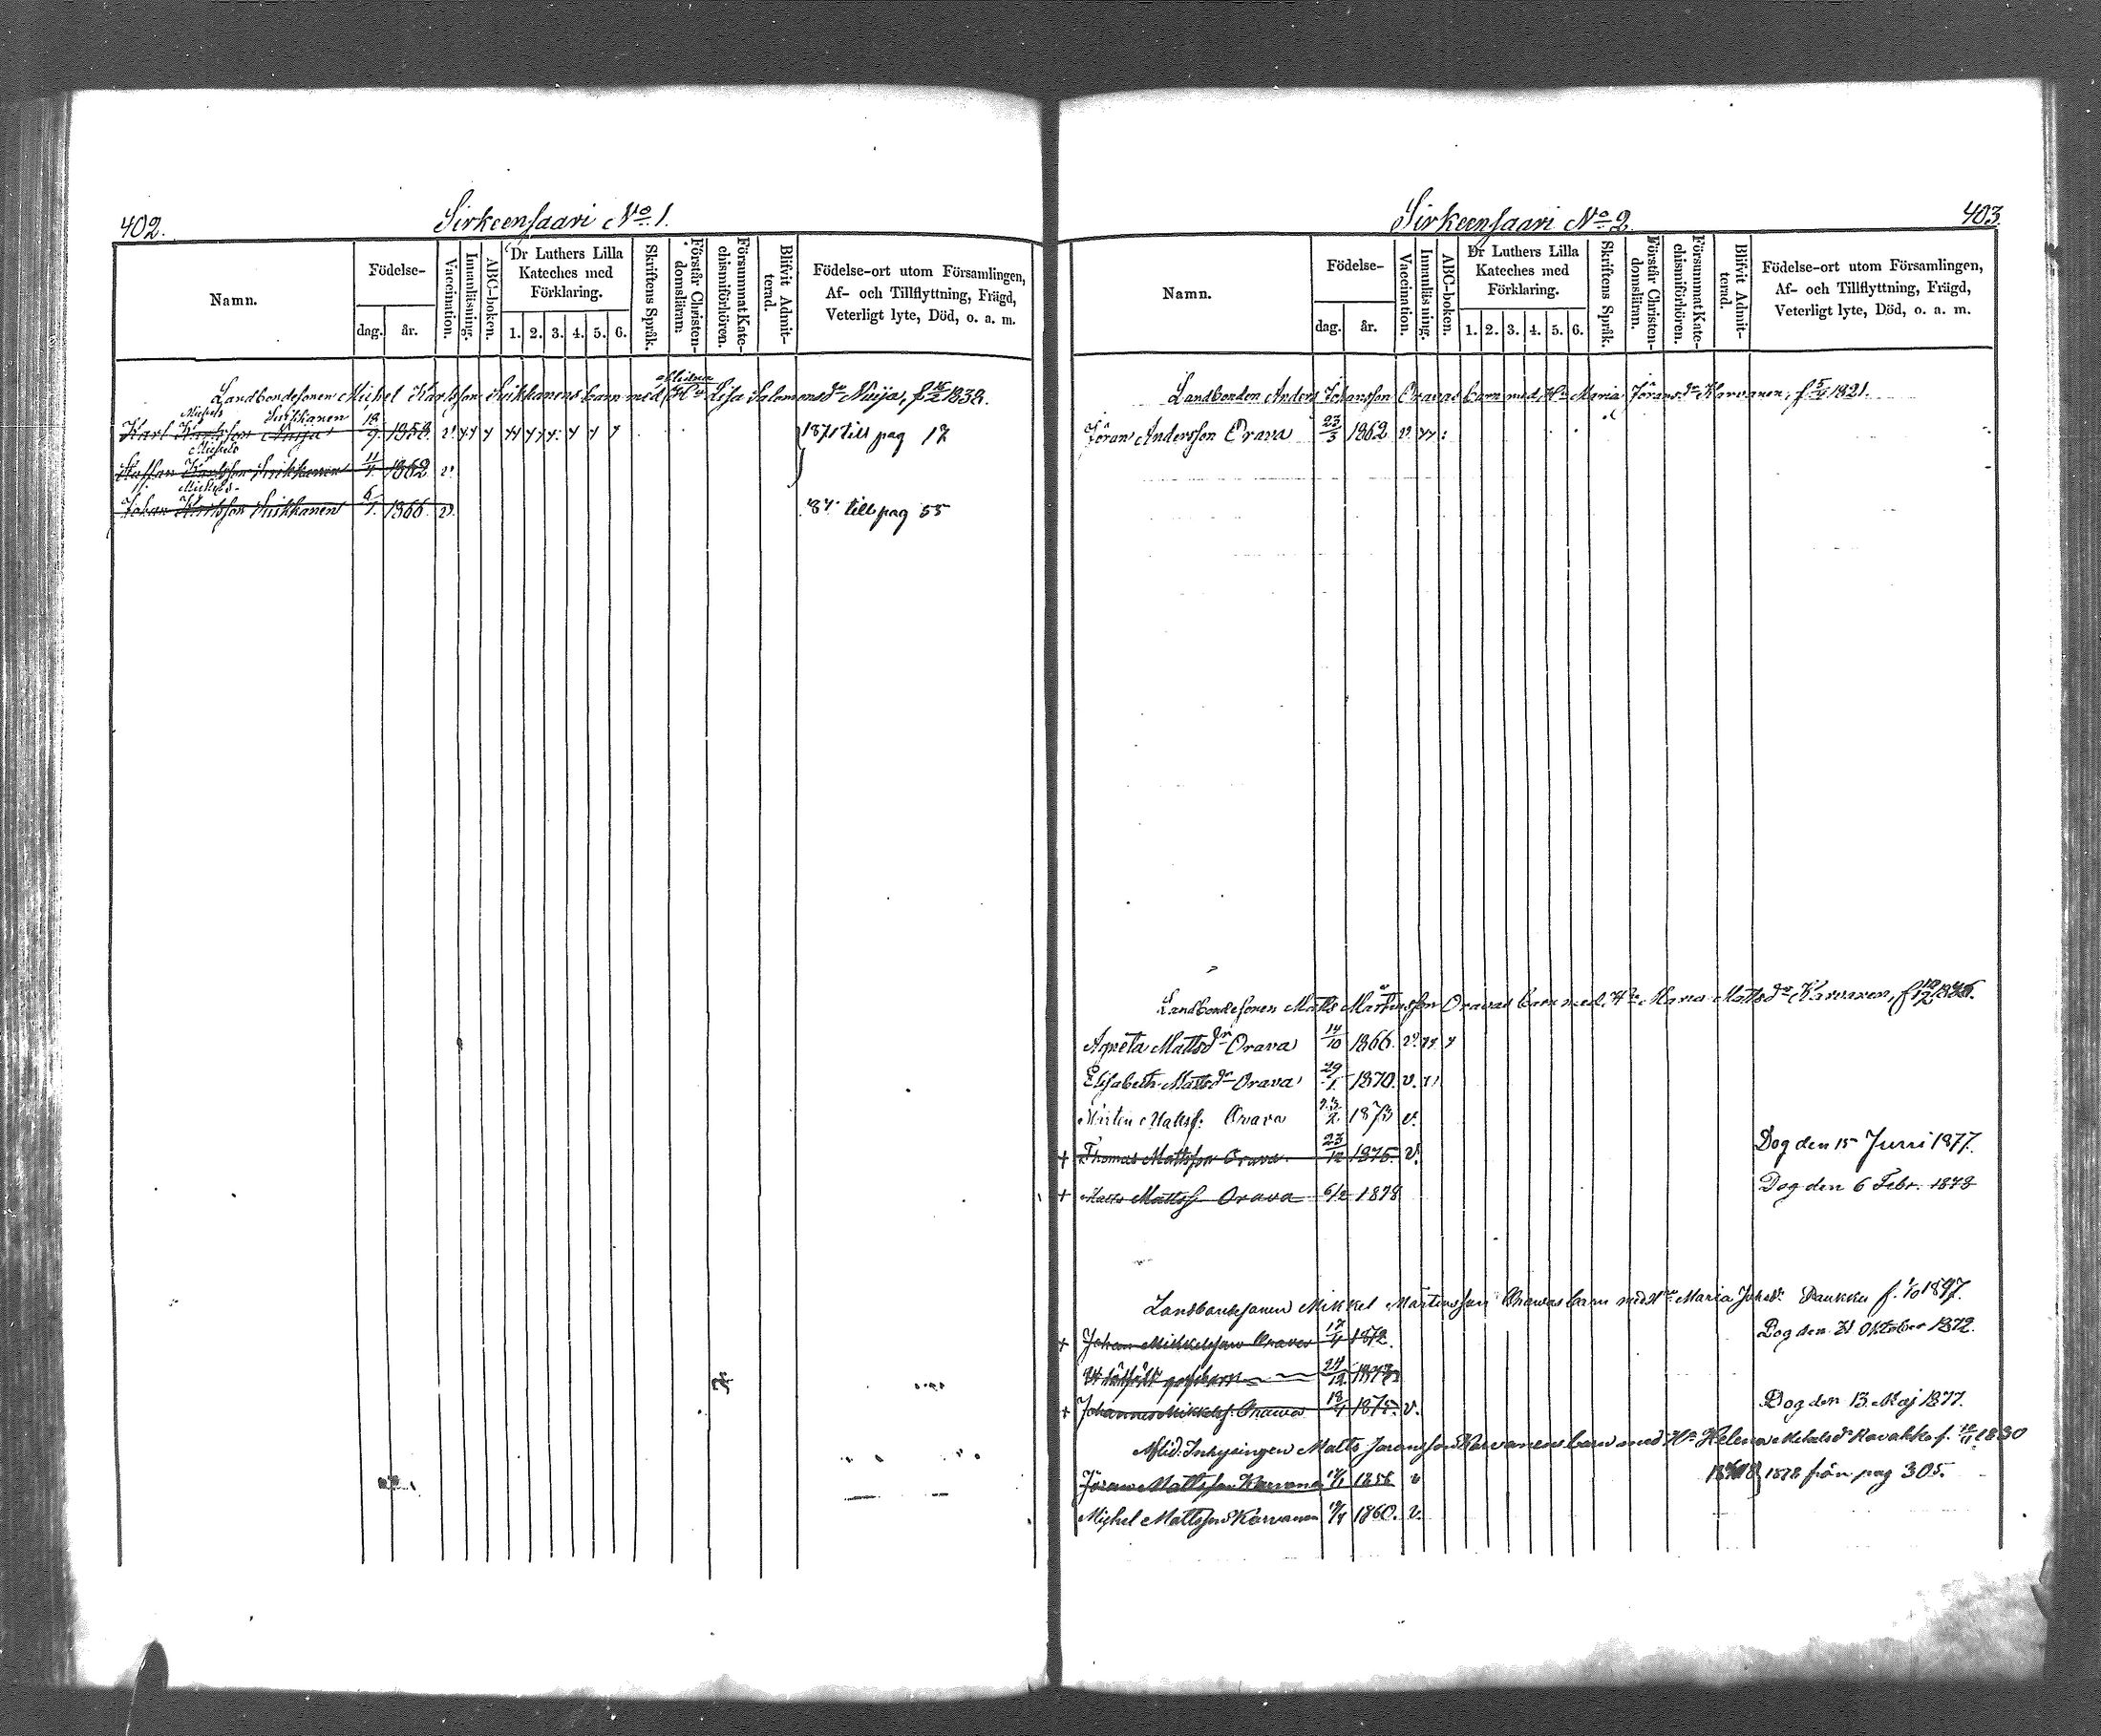 402.
Sirkeensaari No 1.
Namn.
Födelse-
dag.
år.
Vaccination.
Innanläsning.
ABC-boken.
Dr Luthers Lilla
Kateches med
Förklaring.
1. 2. 3. 4. 5. 6.
Skriftens Språk.
Förstår Christen-
domsläran.
Försummat Kate-
chismiförhören.
Blifvit Admit-
terad.
Födelse-ort utom Församlingen,
Af- och Tillflyttning, Frägd,
Veterligt lyte, Död, o. a. m.
Landbondesonen Michel Karlsson Suikkanens barn med Hu Lisa Salomonsdr Nuija, f. 1838.
Michels Suikkanen
Karl Karlsson Nuija 18/9 1858. v.
1871 till pag 17
Michels
Staffan Karlsson Suikkanen 11/4 1862 v.
Michels
Johan Karlsson Suikkanen 6/1 1866. v.
87 till pag 55
Sirkeensaari No 2
403.
Namn.
Födelse-
dag.
år.
Vaccination.
Innanläsning.
ABC-boken.
Dr Luthers Lilla
Kateches med
Förklaring.
1. 2. 3. 4. 5. 6.
Skriftens Språk.
Förstår Christen-
domsläran.
Försummat Kate-
chismiförhören.
Blifvit Admit-
terad.
Födelse-ort utom Församlingen,
Af- och Tillflyttning, Frägd,
Veterligt lyte, Död, o. a. m.
Landbonden Anders Johansson Oravas barn med Hu Maria Jöransdr Karvanen, f. 5/4 1821.
Jöran Andersson Orava 23/3 1862 v.
Landbondesonen Matts Mårtensson Oravas barn med Hu Maria Mattsdr Karvanen, f.
Agneta Mattsdr Orava 14/10 1866. v.
Elisabeth Mattsdr Orava 29/1 1870. v.
Mårten Mattss: Orava 23/2 1873 v.
+ Thomas Mattsson Orava 23/12 1875. v. Dog den 15 Juni 1877.
+ Matts Mattss Orava 6/2 1878 Dog den 6 Febr. 1878
Landbondesonen Mikkel Mårtensson Oravas barn med Hu Maria Johsdr Paukku f. 1/10 1847.
+ Johan Mikkelsson Orava 17/4 1872. Dog den 31 Oktober 1872.
Ett dödfödt gossbarn 24/12 1873
+ Johannes Mikkelss. Orava 18/4 1875. v. Dog den 13 Maj 1877.
Aflid. Inhysingen Matts Jöransson Karvanens barn med Hu Helena Mickelsdr f. 1830
Jöran Mattsson Karvanen 1856 v 1878 från pag 305.
Michel Mattsson Karvanen 1860. v.